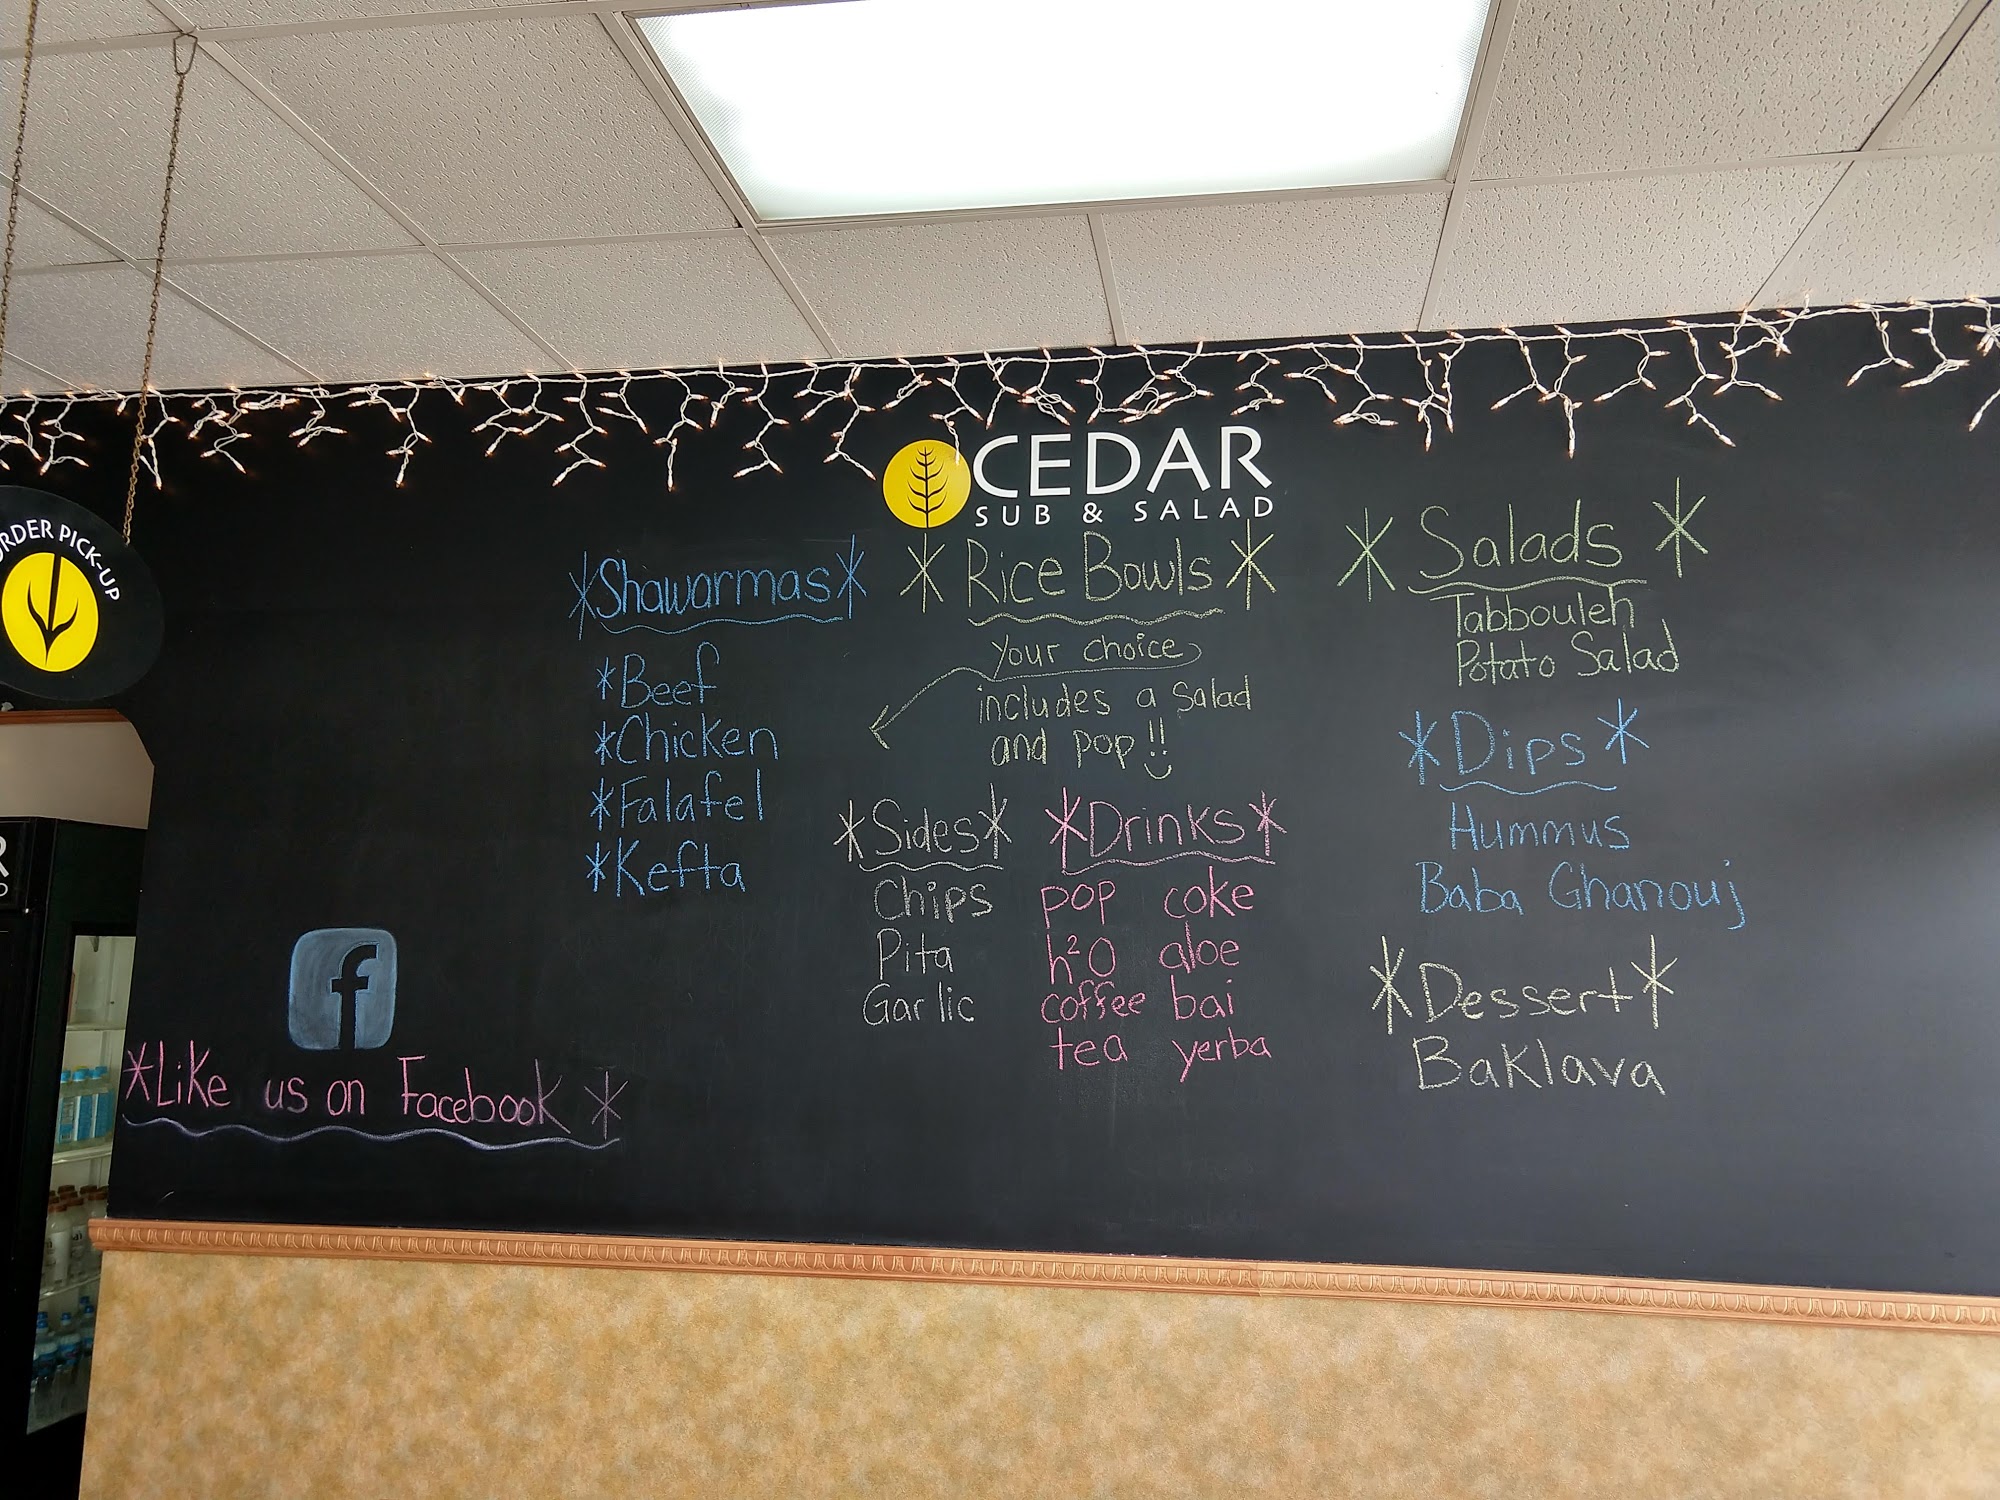 ORDER PICK-UP
CEDAR
SUB & SALAD
*Shawarmas*
*Beef
*Chicken
*Falafel
*Kefta
* Rice Bowls *
Your choice
includes a salad
and pop!!
*Sides*
Chips
Pita
Garlic
*Drinks*
pop coke
h²O aloe
coffee bai
tea yerba
* Salads *
Tabbouleh
Potato Salad
*Dips*
Hummus
Baba Ghanouj
*Dessert*
Baklava
f
*Like us on Facebook *